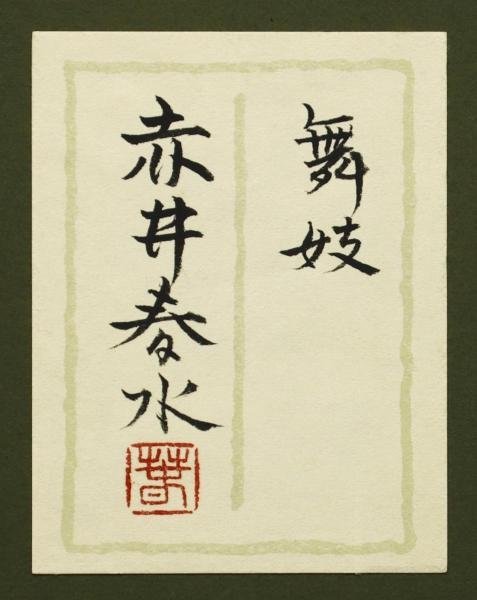 舞妓
赤井春水